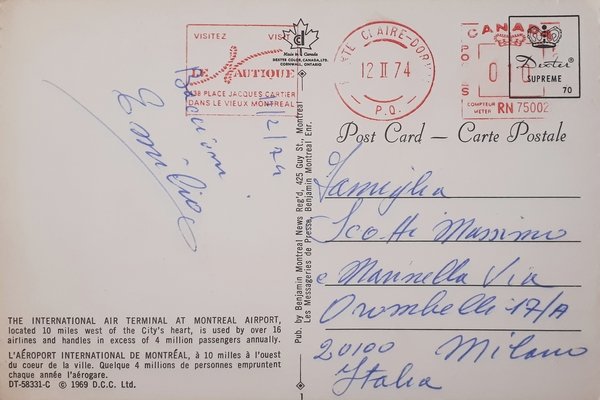 VISITEZ VISIT
LE NAUTIQUE
438 PLACE JACQUES CARTIER
DANS LE VIEUX MONTREAL
Made in Canada
DEXTER COLOR, CANADA, LTD.
CORNWALL, ONTARIO
POINTE CLAIRE-DORVAL
12 II 74
P.Q.
CANADA
POSTES
COMPTEUR
METER RN 75002
Dexter ®
SUPREME
70
Post Card — Carte Postale
Bacioni
Emilio
/2/74
Famiglia
Scotti Massimo
e Marinella Via
Orombelli 17/A
20100 Milano
Italia
Pub. by Benjamin Montreal News Reg'd, 425 Guy St., Montreal
Les Messageries de Presse, Benjamin Montreal Enr.
THE INTERNATIONAL AIR TERMINAL AT MONTREAL AIRPORT,
located 10 miles west of the City's heart, is used by over 16
airlines and handles in excess of 4 million passengers annually.
L'AÉROPORT INTERNATIONAL DE MONTRÉAL, à 10 milles à l'ouest
du coeur de la ville. Quelque 4 millions de personnes empruntent
chaque année l'aérogare.
DT-58331-C © 1969 D.C.C. Ltd.